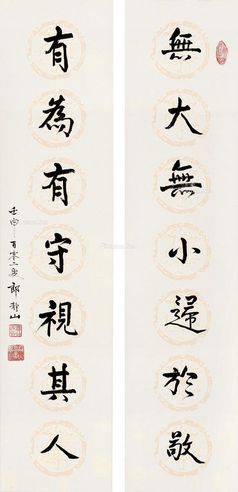 無大無小歸於敬
有為有守視其人
壬申百零二叟郎靜山